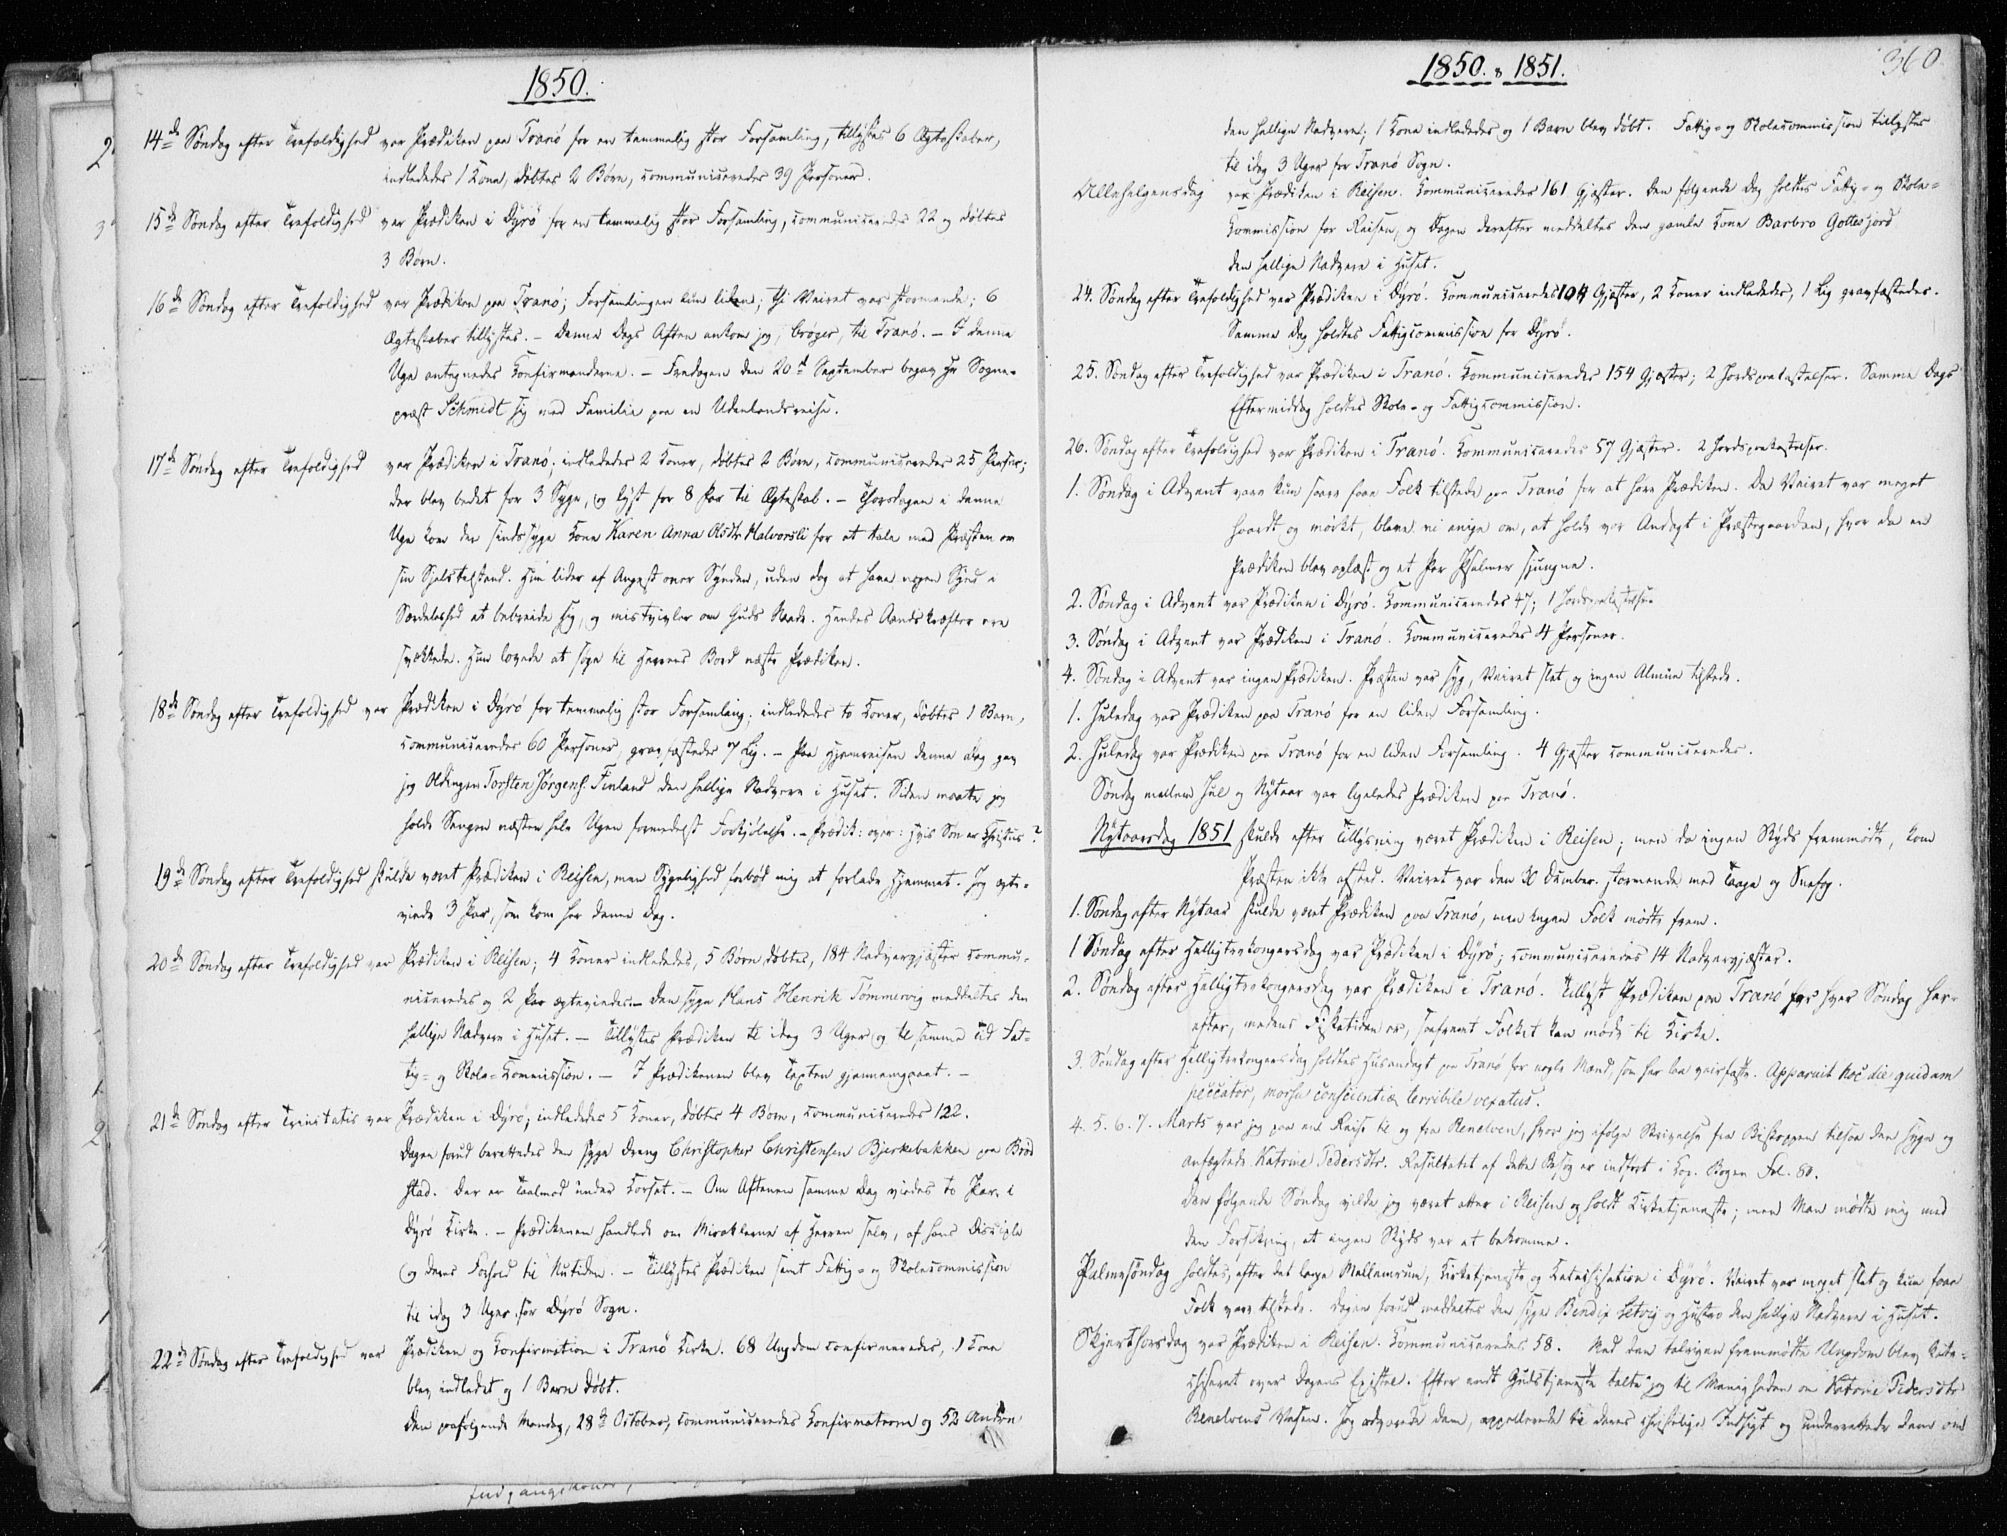 1850.
14de Søndag efter Trefoldighed var Prædiken paa Tranø for en temmelig stor Forsamling, tillystes 6 Ægteskaber,
indlededes 1 Kone, døbtes 2 Børn, communiceredes 39 Personer.
15de Søndag efter Trefoldighed var Prædiken i Dyrø for en temmelig stor Forsamling, communiceredes 22 og døbtes
3 Børn.
16de Søndag efter Trefoldighed var Prædiken paa Tranø; Forsamlingen kun liden; thi Veiret var stormende; 6
Ægteskaber tillystes. – Denne Dags Aften ankom jeg, Crøger, til Tranø. – I denne
Uge antegnedes Konfirmanderne. – Fredagen den 20de September begav Hr Sogne-
præst Schmidt sig med Familie paa en Udenlandsreise.
17de Søndag efter Trefoldighed var Prædiken i Tranø; indlededes 2 Koner, døbtes 2 Børn, communiceredes 25 Person;
der blev bedet for 3 Syge, og lyst for 8 Par til Ægteskab. – Thorsdagen i denne
Uge kom den sindssyge Kone Karen Anna Olsdtr Halvorsli for at tale med Præsten om
sin Sjelstilstand. Hun lider af Angest over Synden, uden dog at have nogen Synd i
Særdeleshed at bebreide sig, og mistvivler om Guds Naade. Hendes Aandskræfter ere
svækkede. Hun lovede at søge til Herrens Bord næste Prædiken.
18de Søndag efter Trefoldighed var Prædiken i Dyrø for temmelig stor Forsamling; indlededes to Koner, døbtes 1 Barn,
communiceredes 60 Personer, gravfæstedes 7 Lig. – Paa Hjemreisen denne Dag gav
jeg Oldingen Torsten Jørgens. Finland den hellige Nadvere i Huset. Siden maatte jeg
holde Sengen næsten hele Ugen formedelst Forkjølelse. – Prædik: over: Hvis Søn er Christus?
19de Søndag efter Trefoldighed skulde været Prædiken i Reisen, men Sygelighed forbød mig at forlade Hjemmet. Jeg ægte-
viede 3 Par, som kom her denne Dag.
20de Søndag efter Trefoldighed var Prædiken i Reisen; 4 Koner indlededes, 5 Børn døbtes, 184 Nadvergjæster commu-
niceredes og 2 Par ægteviedes. – Den syge Hans Henrik Tømmervig meddeltes den
hellige Nadvere i Huset. – Tillystes Prædiken til idag 3 Uger og til samme Tid Fat-
tig- og Skole-Kommission. – I Prædikenen blev Texten gjennemgaaet. –
21de Søndag efter Trinitatis var Prædiken i Dyrø; indlededes 5 Koner, døbtes 4 Børn, communiceredes 122.
Dagen forud berettedes den syge Dreng Christopher Christensen Bjerkebakken paa Brød
stad. Der er Taalmod under Korset. – Om Aftenen samme Dag viedes to Par i
Dyrø Kirke. – Prædikenen handlede om Miraklerne af Herren selv, af hans Disciple
og deres Forhold til Nutiden. – Tillystes Prædiken samt Fattig- og Skolecommission
til idag 3 Uger for Dyrø Sogn.
22de Søndag efter Trefoldighed var Prædiken og Confirmation i Tranø Kirke. 68 Ungdom confirmeredes, 1 Kone
blev indledet og 1 Barn døbt.
Den paafølgende Mandag, 28de October, communiceredes Konfirmaterne og 52 Andre
1850. & 1851.
360
den hellige Nadvere; 1 Kone indlededes og 1 Barn blev døbt. Fattig- og Skolecommission tillystes
til idag 3 Uger for Tranø Sogn.
Allehelgensdag var Prædiken i Reisen. Kommuniceredes 161 Gjæster. Den følgende Dag holdtes Fattig- og Skole-
Kommission for Reisen, og Dagen derefter meddeltes den gamle Kone Barbro Gollesjord
den hellige Nadvere i Huset.
24. Søndag efter Trefoldighed var Prædiken i Dyrø. Kommuniceredes 104 Gjæster, 2 Koner indlededes, 1 Lig gravfæstedes.
Samme Dag holdtes Fattigcommission for Dyrø.
25. Søndag efter Trefoldighed var Prædiken i Tranø. Kommuniceredes 154 Gjæster; 2 Jordspaakastelser. Samme Dags
Eftermiddag holdtes Skole- og Fattigcommission.
26. Søndag efter Trefoldighed var Prædiken i Tranø. Kommuniceredes 57 Gjæster. 2 Jordspaakastelser.
1. Søndag i Advent vare kun saare faae Folk tilstede paa Tranø for at høre Prædiken. Da Veiret var meget
haardt og mørkt, bleve vi enige om, at holde vor Andagt i Præstegaarden, hvor da en
Prædiken blev oplæst og et Par Psalmer sjungne.
2. Søndag i Advent var Prædiken i Dyrø. Kommuniceredes 47; 1 Jordspaakastelse.
3. Søndag i Advent var Prædiken i Tranø. Kommuniceredes 4 Personer.
4. Søndag i Advent var ingen Prædiken. Præsten var syg, Veiret slet og ingen Almue tilstede.
1. Juledag var Prædiken paa Tranø for en liden Forsamling.
2. Juledag var Prædiken paa Tranø for en liden Forsamling. 4 Gjæster communiceredes.
Søndag mellem Jul og Nytaar var ligeledes Prædiken paa Tranø.
Nytaarsdag 1851 skulde efter Tillysning været Prædiken i Reisen; men da ingen Skyds fremmødte, kom
Præsten ikke afsted. Veiret var den 30 Decmber. stormende med Taage og Snefog.
1. Søndag efter Nytaar skulde været Prædiken paa Tranø, men ingen Folk mødte frem.
1 Søndag efter Helligtrekongersdag var Prædiken i Dyrø; communiceredes 14 Nadvergjæster.
2. Søndag efter Helligtrekongersdag var Prædiken i Tranø. Tillyst Prædiken paa Tranø for hver Søndag her-
efter, medens Fisketiden er, saafremt Folket kan møde til Kirke.
3. Søndag efter Helligtrekongersdag holdtes Husandagt paa Tranø for nogle Mænd, som her laa veirfaste. Apparuit hoc die quidam
peccator, morsu conscientiæ terribile vexatus.
4. 5. 6. 7. Marts var jeg paa en Reise til og fra Renelven, hvor jeg ifølge Skrivelse fra Biskoppen tilsaa den syge og
anfægtede Katrine Pedersdtr. Resultatet af dette Besøg er indført i Kop. Bogen Fol. 80.
Den følgende Søndag vilde jeg været atter i Reisen og holdt Kirketjeneste; men Man mødte mig med
den Forsikring, at ingen Skyds var at bekomme.
Palmesøndag holdtes, efter det lange Mellemrum, Kirketjeneste og Katechisation i Dyrø. Veiret var meget slet og kun faae
Folk vare tilstede. Dagen forud meddeltes den syge Bendix Letvig og Hustro den hellige Nadvere i Huset.
Skjærthorsdag var Prædiken i Reisen. Kommuniceredes 58. Med den talrigen fremmødte Ungdom blev kate-
chiseret over Dagens Epistel. Efter endt Gudstjeneste talte jeg til Menigheden om Katrine Pedersdtr
Renelvens Væsen. Jeg advarede dem, appellerede til deres christelige Indsigt og underrettede dem om